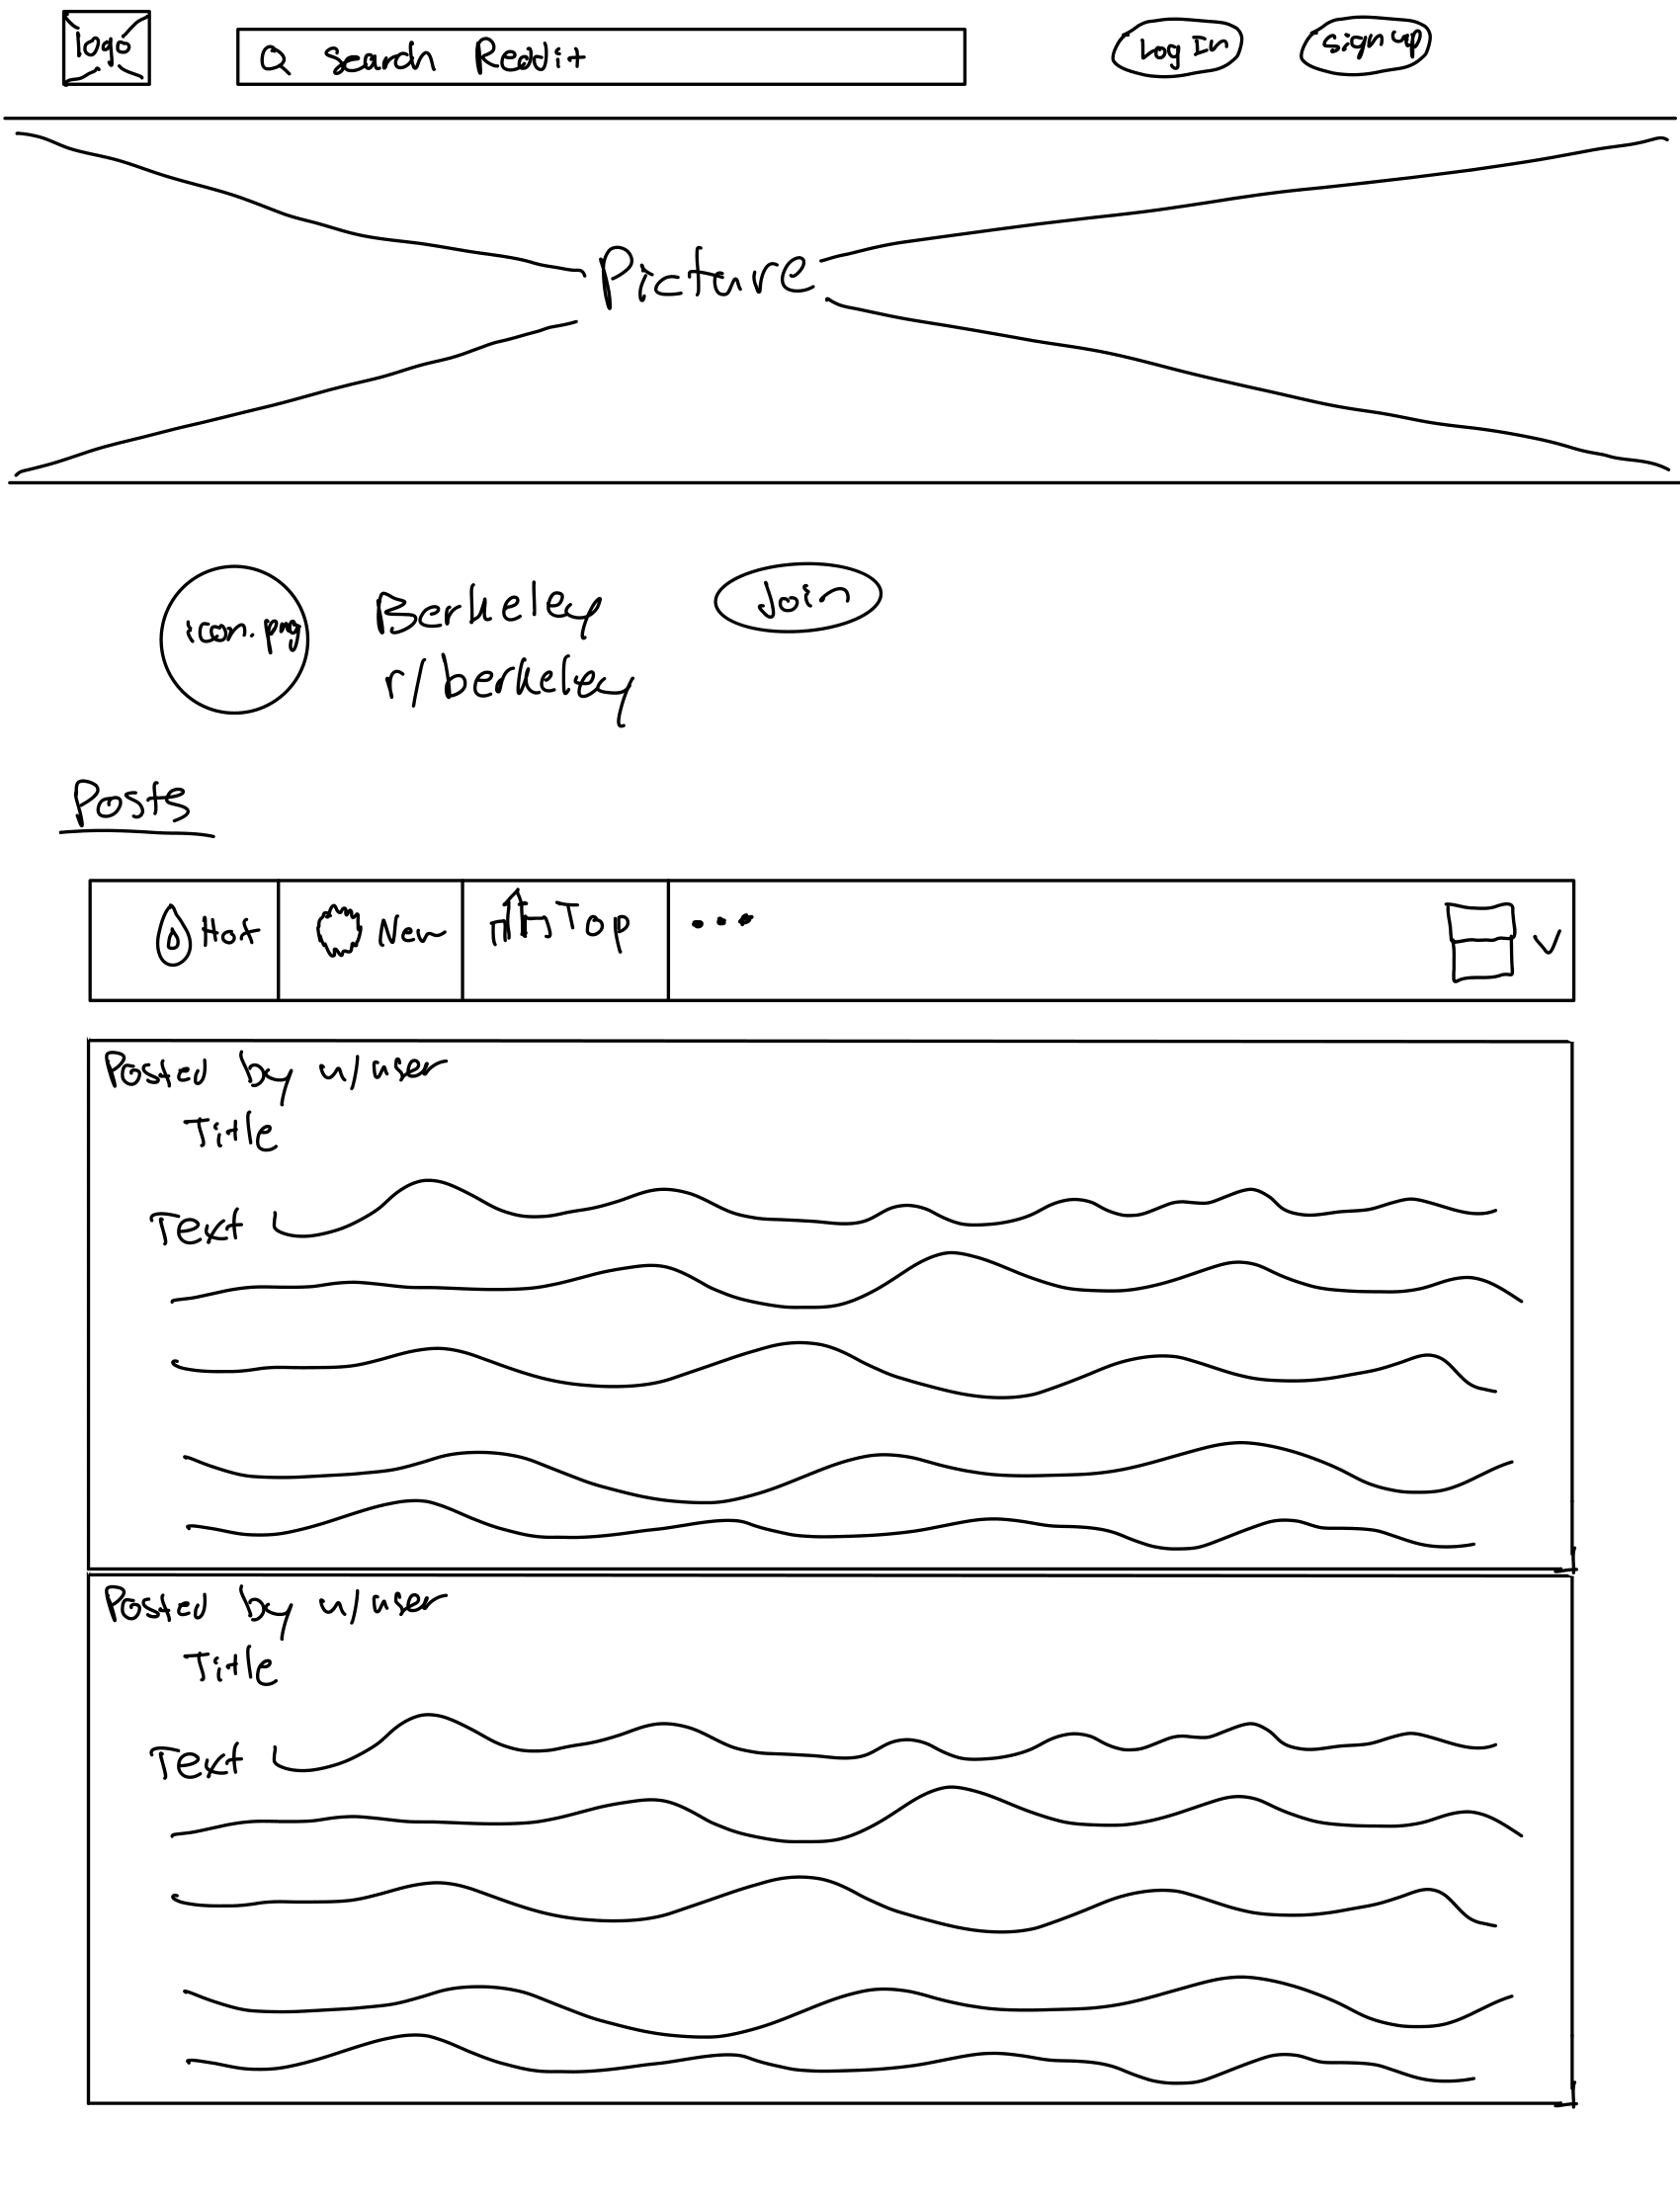 logo
Search Reddit
Log In
Sign up
Picture
icon.png
Berkeley
Join
r/berkeley
Posts
Hot
New
Top
...
Posted by u/user
Title
Text
Posted by u/user
Title
Text